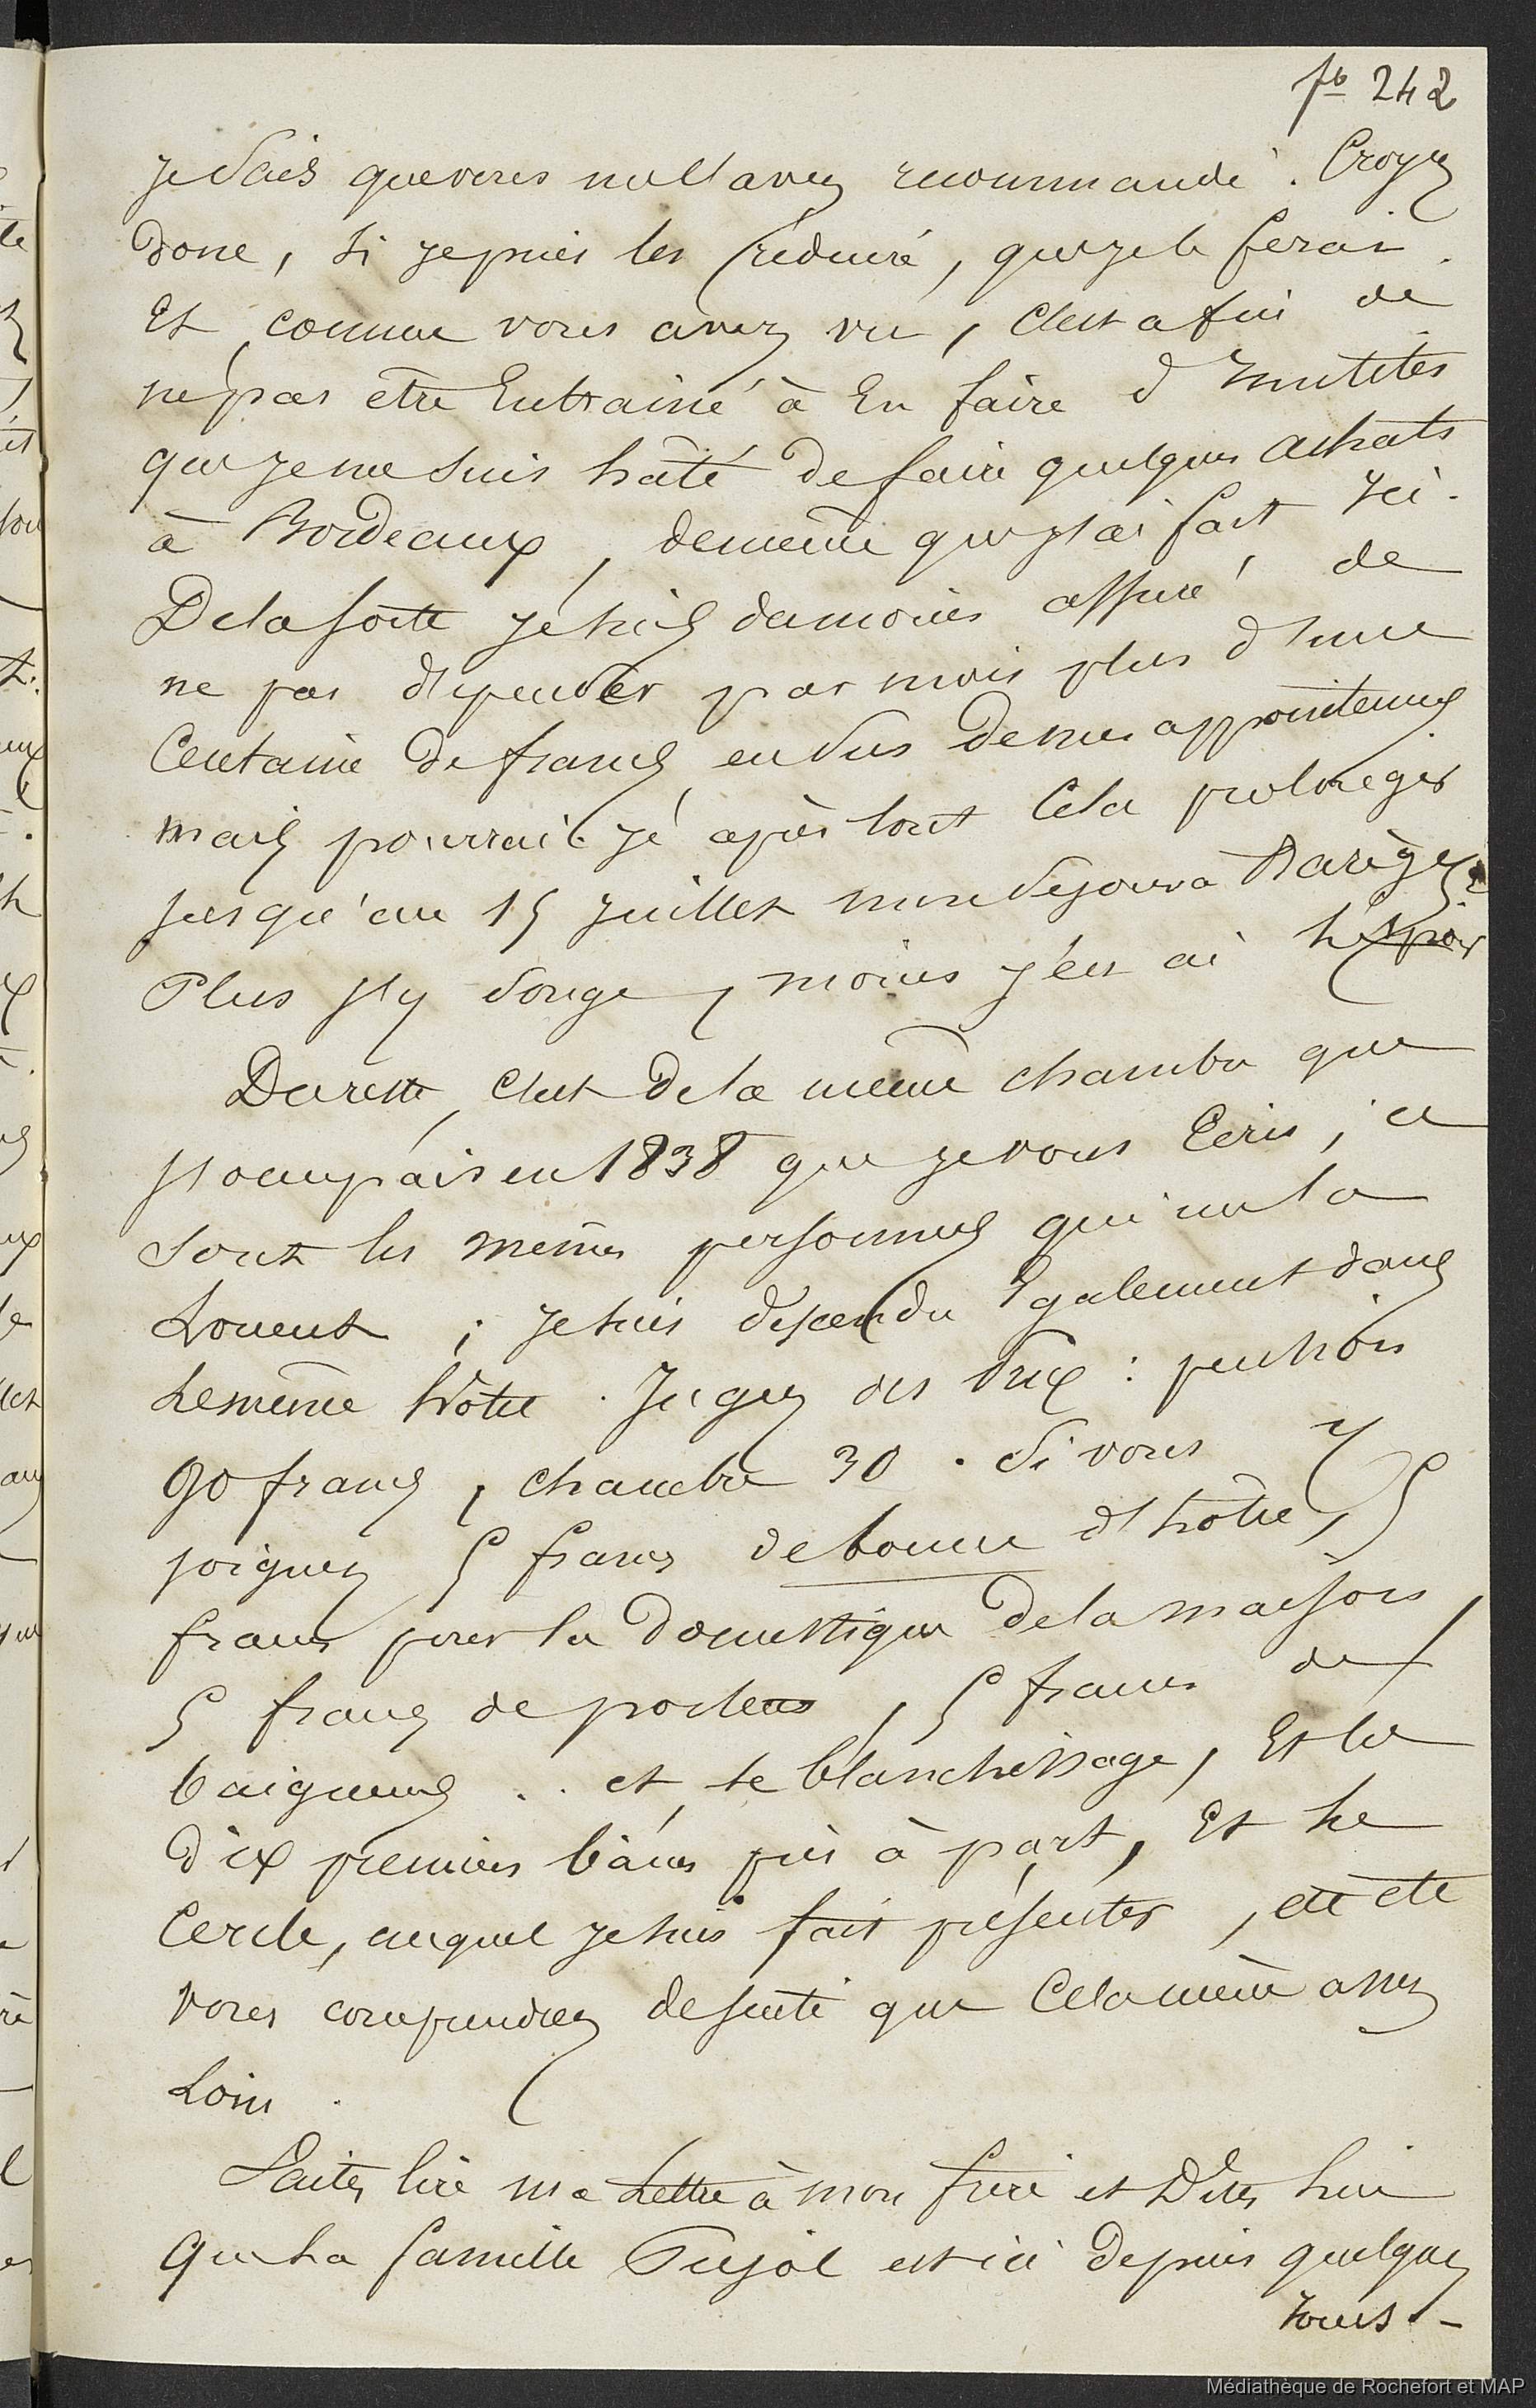 fo 242
je sais que vous me l'avez recommandé. Croyez
donc, si je puis les réduire, que je le ferai.
Et comme vous avez vu, c'est afin de
ne pas être Entrainé à En faire d'Inutiles
que je me suis hâté de faire quelques achats
à Bordeaux, de même que j'ai fait Ici.
De la sorte je suis du moins assuré de
ne pas dépenser par mois plus d'une
Centaine de francs en sus de mes appointemens
mais pourrai-je après tout Cela prolonger
jusqu'au 15 juillet mon séjour à Barèges ?
Plus j'y songe, moins j'en ai l'espoir
Du reste, c'est de la même chambre que
j'occupais en 1838 que je vous Ecris ; ce
sont les mêmes personnes qui me la
Louent ; je suis descendu Egalement dans
Le même hôtel. Jugez des prix : pension
90 francs, chambre 30. Si vous y
joignez 5 francs de bonne d'hôtel, 5
francs pour la domestique de la maison,
5 francs de porteurs, 5 francs de
baigneurs .. et le blanchissage, Et les
dix premiers bains pris à part, Et le
Cercle, auquel je suis fait présenter, etc etc
vous comprendrez de suite que Cela mène assez
Loin.
Faites lire ma Lettre à mon frère et Dites lui
que La famille Pujol est ici depuis quelques
Jours -
Médiathèque de Rochefort et MAP